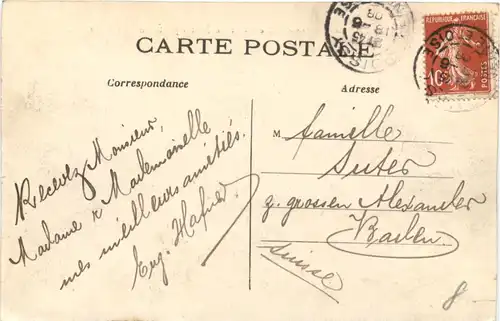 CARTE POSTALE
Correspondance
Adresse
Recevez Monsieur,
Madame & Mademoiselle
mes meilleurs amitiés.
Eug. Hafner
M famille
Suter
z. grossen Alexander
Baden
Suisse
RÉPUBLIQUE FRANÇAISE
POSTES
10
8